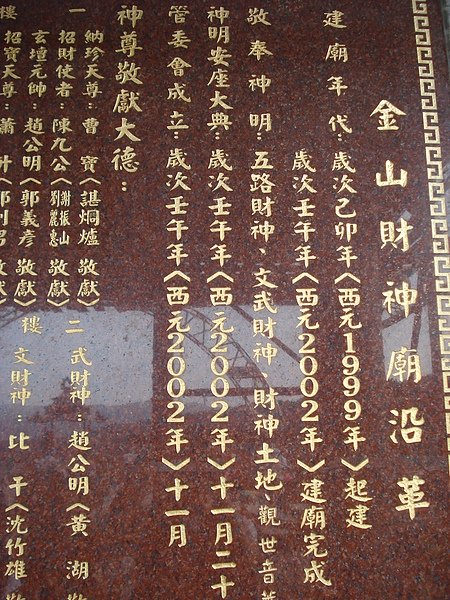 金山財神廟沿革
建廟年代:歲次己卯年〈西元1999年〉起建
歲次壬午年〈西元2002年〉建廟完成
敬奉神明:五路財神、文武財神 財神土地、觀世音菩
神明安座大典:歲次壬午年〈西元2002年〉十一月二十
管委會成立:歲次壬午年〈西元2002年〉十一月
神尊敬獻大德:
納珍天尊:曹 寶〈諶炯爐 敬獻〉
一 招財使者:陳九公〈謝振山 劉麗惠 敬獻〉
玄壇元帥:趙公明〈郭義彥 敬獻〉
樓 招寶天尊:蕭 升 敬獻〉
二 武財神:趙公明〈黃 湖 敬
樓 文財神:比 干〈沈竹雄 敬